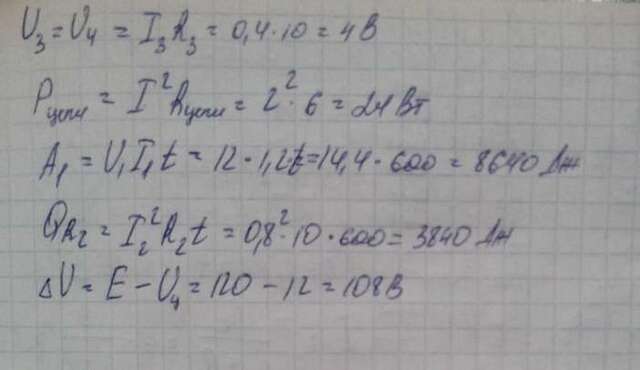 U₃ = U₄ = I₃R₃ = 0,4·10 = 4 В
Pцепи = I²Rцепи = 2²·6 = 24 Вт
A₁ = U₁I₁t = 12·1,2·t = 14,4·600 = 8640 Дж
QR₂ = I₂²R₂t = 0,8²·10·600 = 3840 Дж
ΔU = E − Uц = 120 − 12 = 108 В